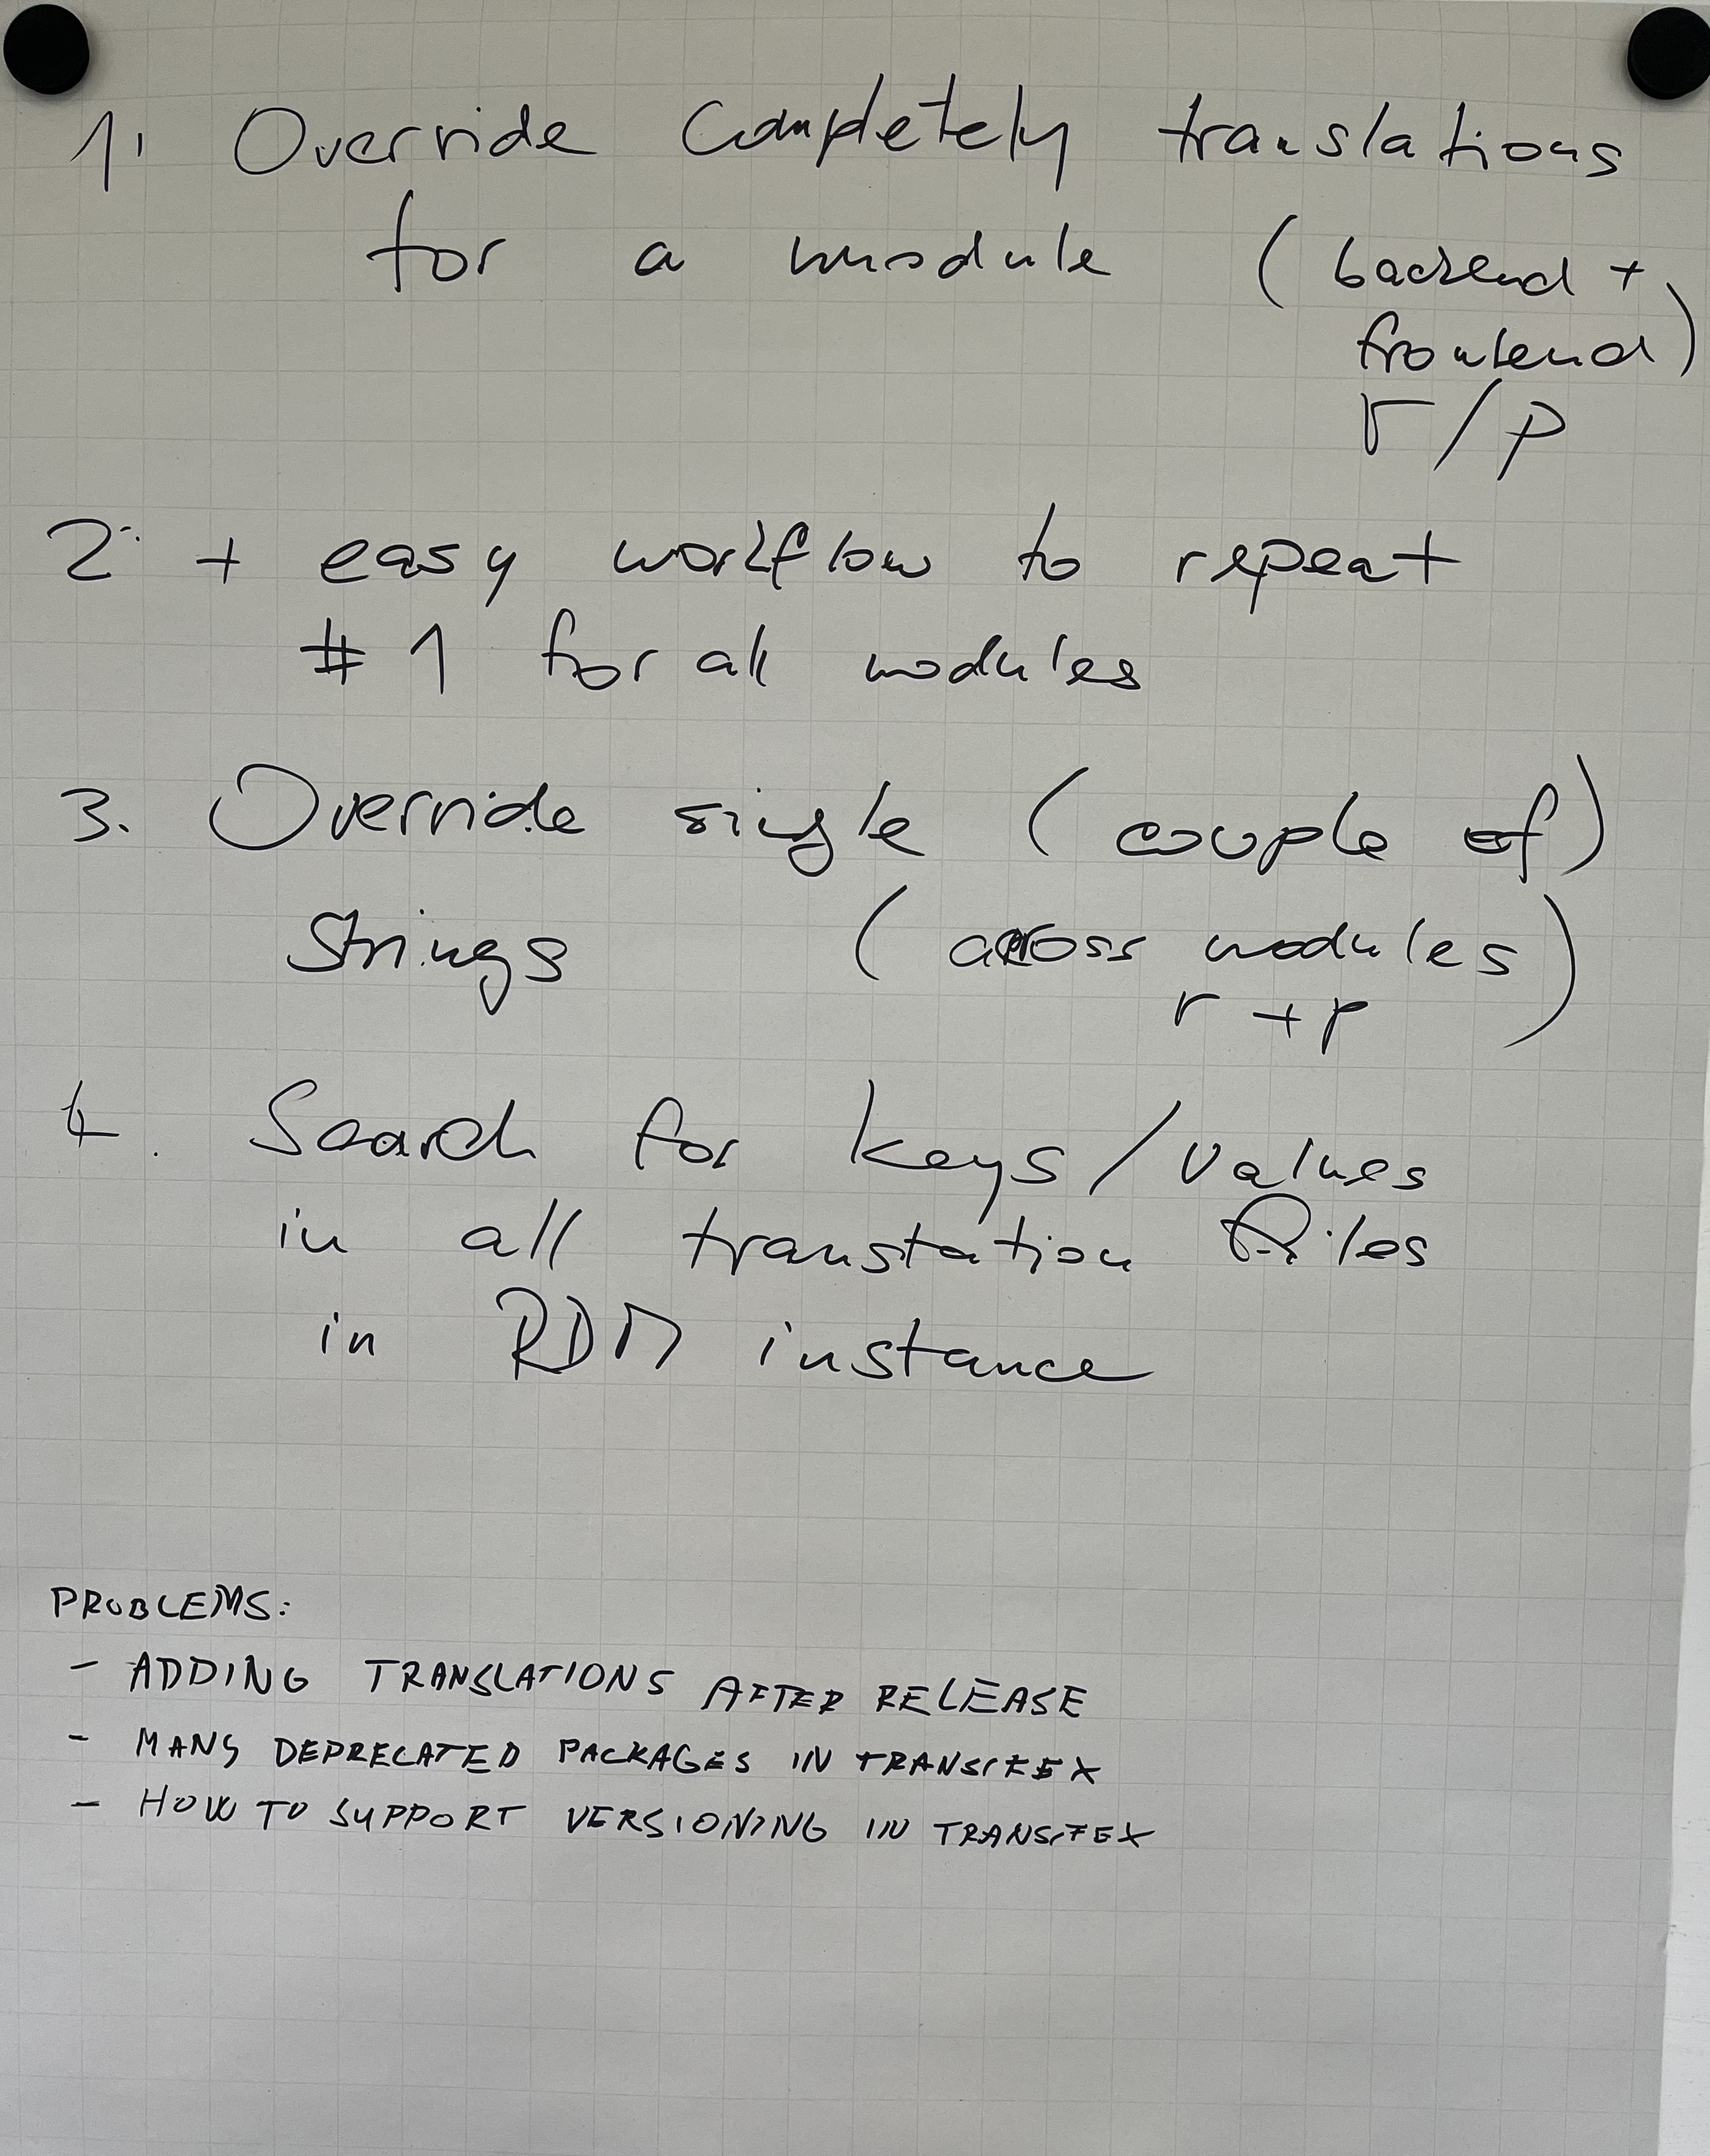 1. Override completely translations
for a module (backend +
frontend)
r/p
2. + easy workflow to repeat
#1 for all modules
3. Override single (couple of)
strings (across modules)
r + p
4. Search for keys/values
in all translation files
in RDM instance
PROBLEMS:
- ADDING TRANSLATIONS AFTER RELEASE
- MANY DEPRECATED PACKAGES IN TRANSIFEX
- HOW TO SUPPORT VERSIONING IN TRANSIFEX